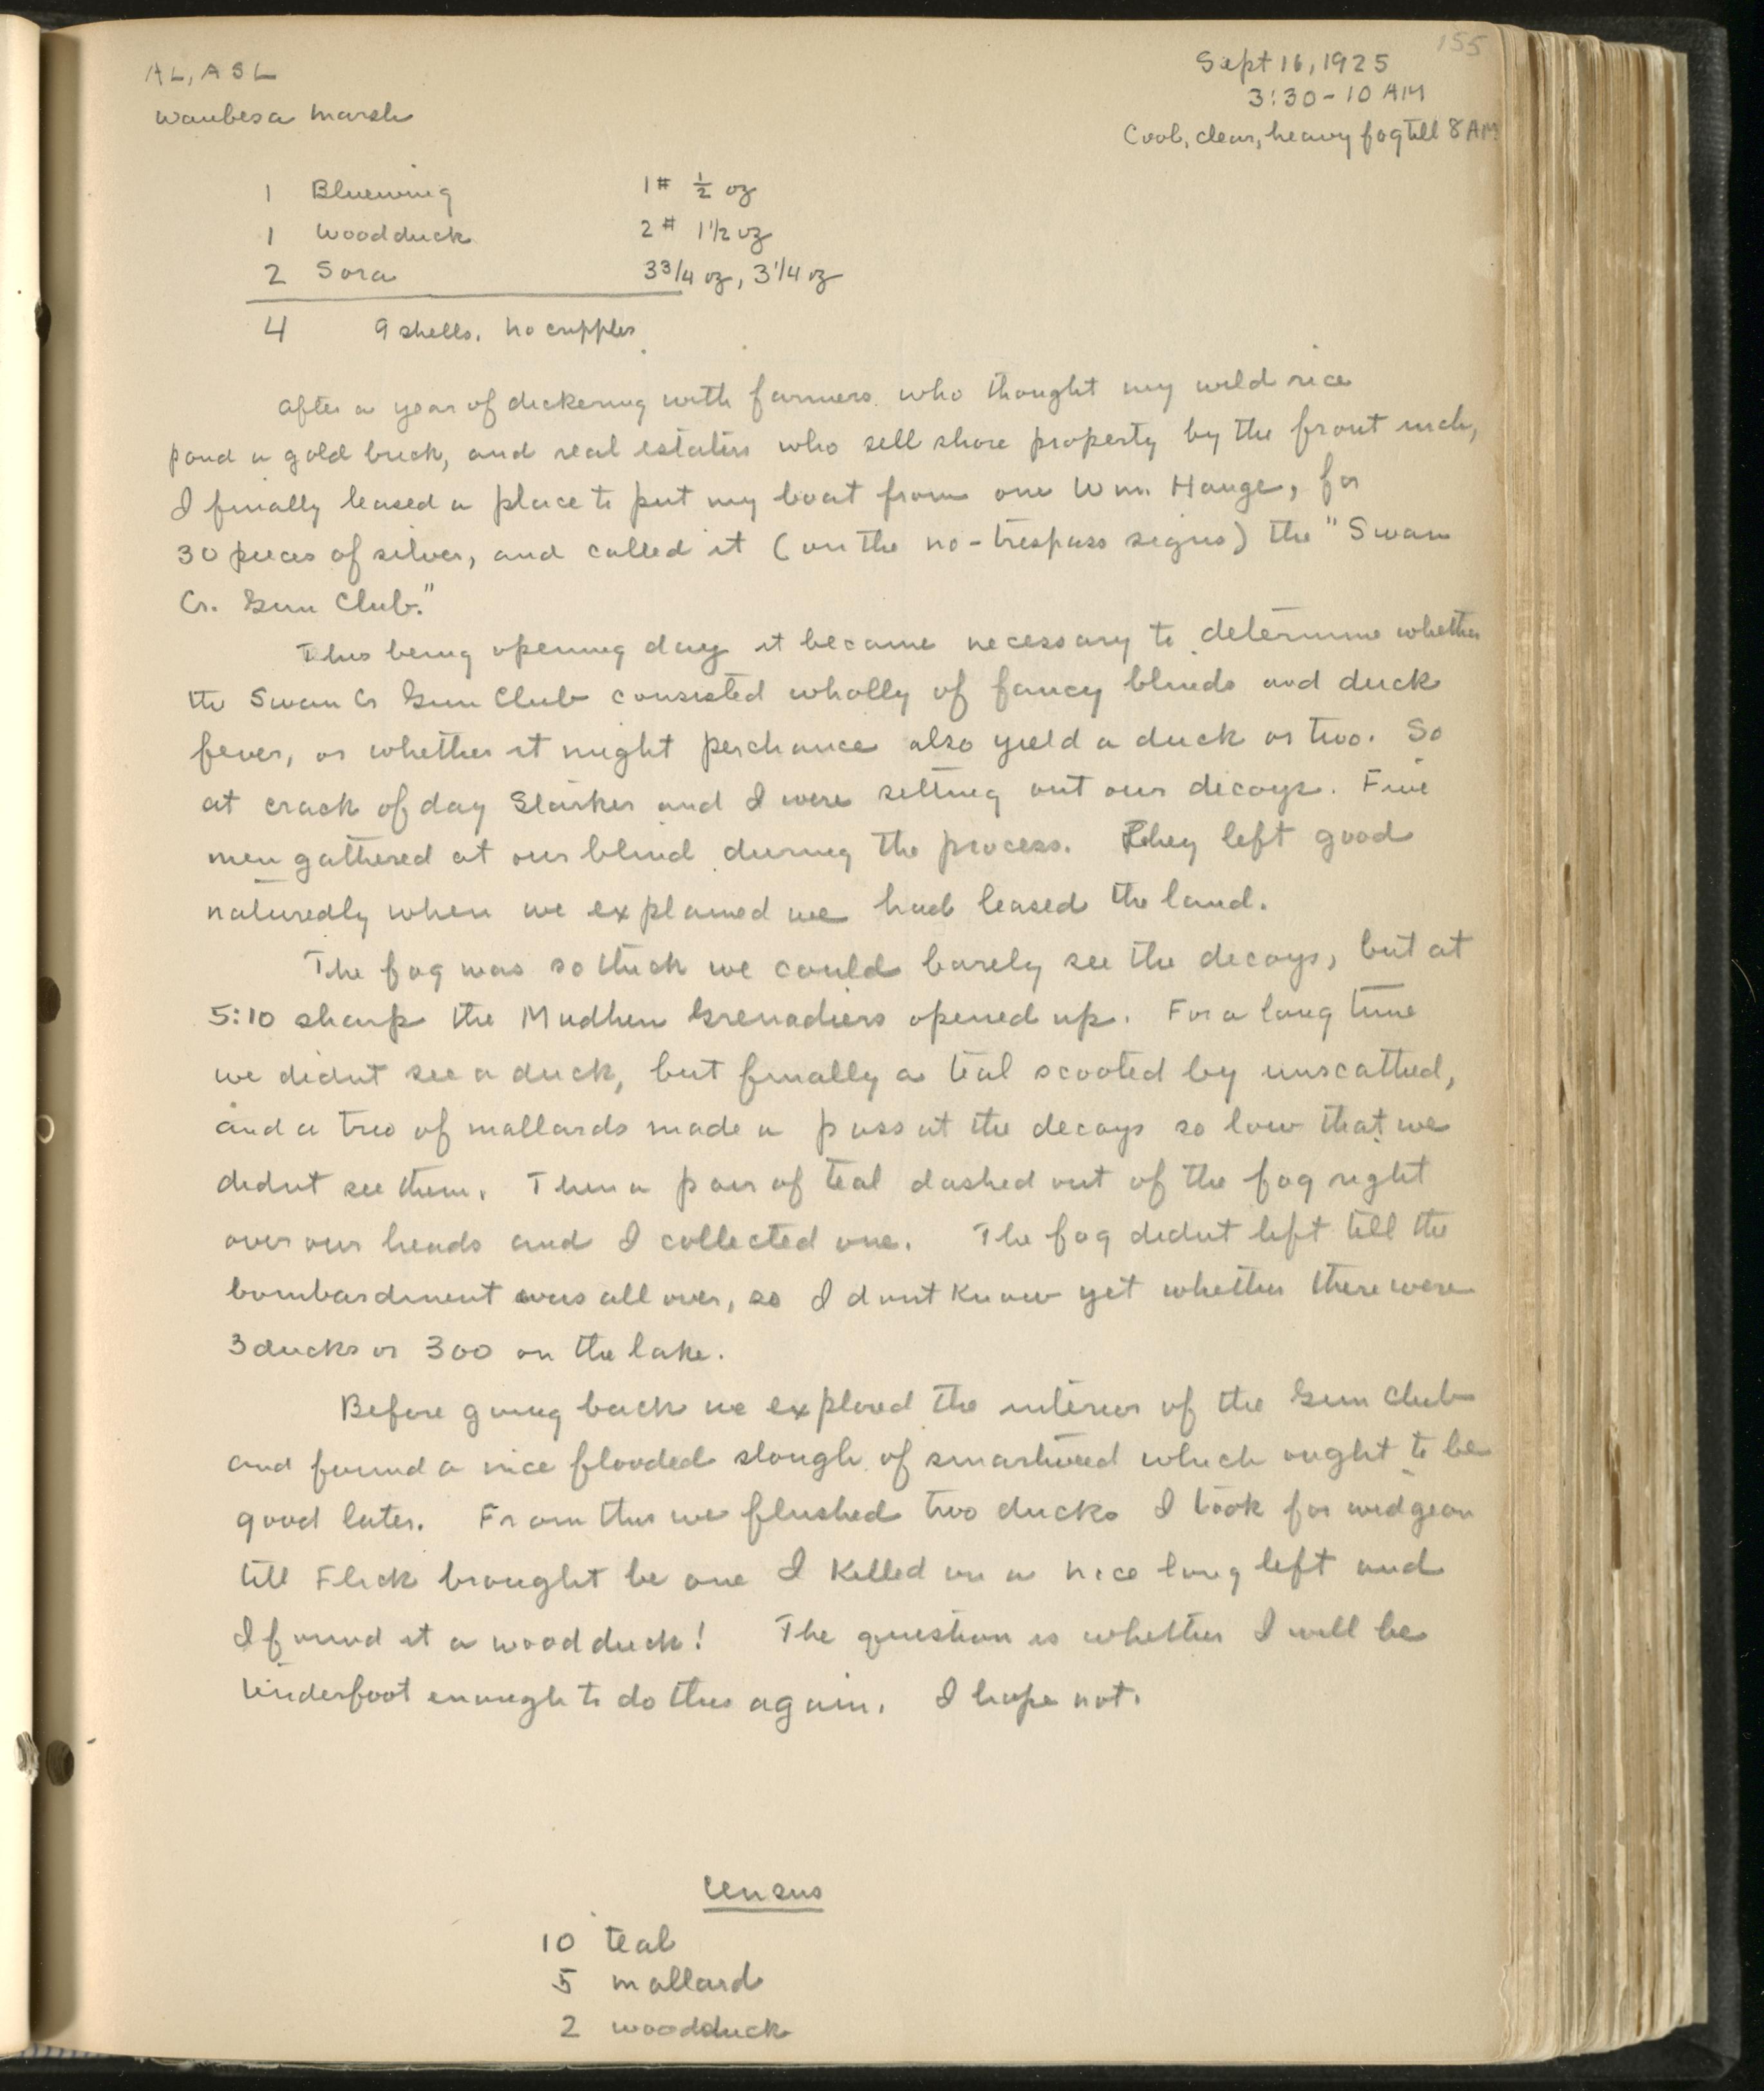 155
AL, ASL
Sept 16, 1925
Waubesa Marsh
3:30 - 10 AM
Cool, clear, heavy fog till 8 AM
1 Bluewing 1# ½ oz
1 Woodduck 2# 1½ oz
2 Sora 3 3/4 oz, 3 1/4 oz
4 9 shells. No cripples
After a year of dickering with farmers who thought my wild rice
pond a gold brick, and real estaters who sell shore property by the front inch,
I finally leased a place to put my boat from one Wm. Hauge, for
30 pieces of silver, and called it (on the no-trespass signs) the "Swan
Cr. Gun Club."
This being opening day it became necessary to determine whether
the Swan Cr Gun Club consisted wholly of fancy blinds and duck
fever, or whether it might perchance also yield a duck or two. So
at crack of day Starker and I were setting out our decoys. Five
men gathered at our blind during the process. They left good
naturedly when we explained we had leased the land.
The fog was so thick we could barely see the decoys, but at
5:10 sharp the Mudhen Grenadiers opened up. For a long time
we didnt see a duck, but finally a teal scooted by unscathed,
and a trio of mallards made a pass at the decoys so low that we
didnt see them. Then a pair of teal dashed out of the fog right
over our heads and I collected one. The fog didnt lift till the
bombardment was all over, so I dont know yet whether there were
3 ducks or 300 on the lake.
Before going back we explored the interior of the Gun Club
and found a nice flooded slough of smartweed which ought to be
good later. From this we flushed two ducks I took for widgeon
till Flick brought be one I killed on a nice long left and
I found it a woodduck! The question is whether I will be
tenderfoot enough to do this again. I hope not.
Census
10 teal
5 mallard
2 woodduck